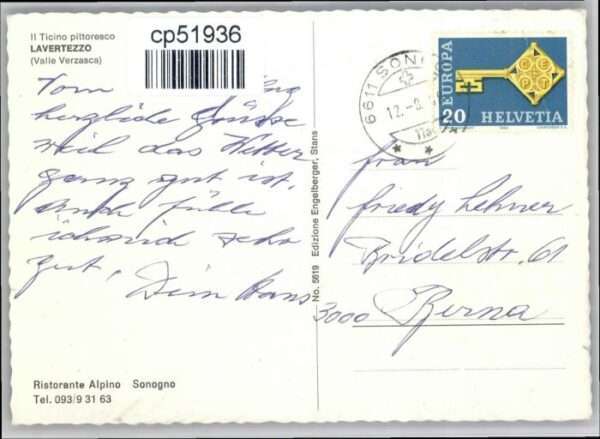 Il Ticino pittoresco
LAVERTEZZO
(Valle Verzasca)
cp51936
Vom
herzliche Grüsse
weil das Wetter
ganz gut ist.
Auch fühle
ich mich sehr
gut, Dein Hans
Ristorante Alpino Sonogno
Tel. 093/9 31 63
No. 5619 Edizione Engelberger, Stans
6611 SONO
12.-9.
EUROPA
CEPT
20 HELVETIA
Frau
Friedy Lehner
Bridelstr. 61
3000 Berna